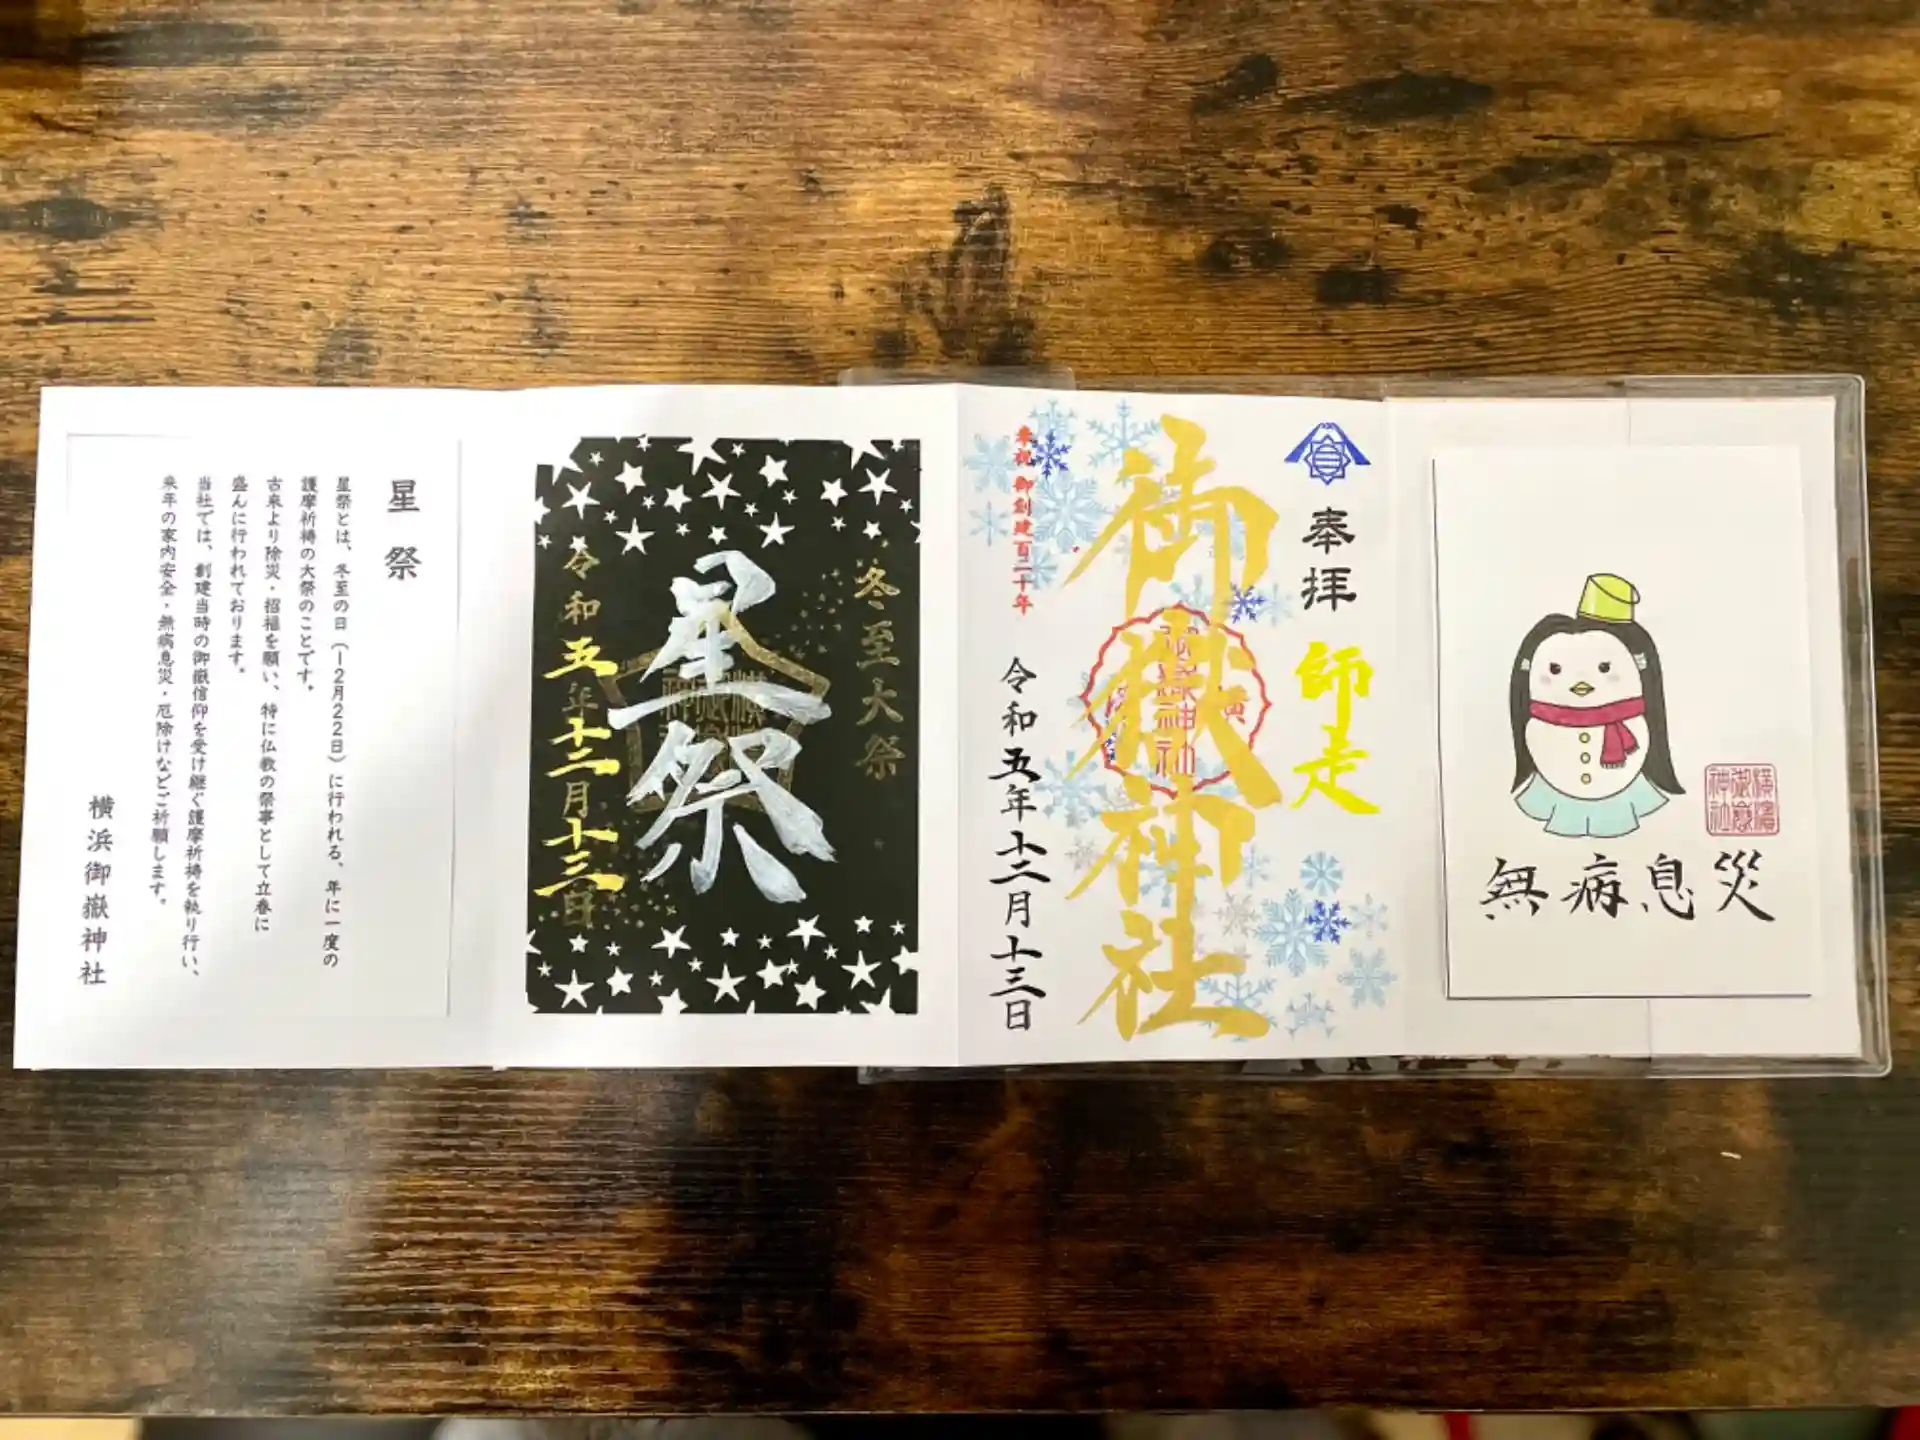 無病息災
横濱
御嶽
神社
奉拝
師走
御嶽神社
奉祝 御創建百二十年
令和五年十二月十三日
冬至大祭
星祭
令和五年十二月十三日
星祭
星祭とは、冬至の日(12月22日)に行われる、年に一度の
護摩祈祷の大祭のことです。
古来より除災・招福を願い、特に仏教の祭事として立春に
盛んに行われております。
当社では、創建当時の御嶽信仰を受け継ぐ護摩祈祷を執り行い、
来年の家内安全・無病息災・厄除けなどご祈願します。
横浜御嶽神社